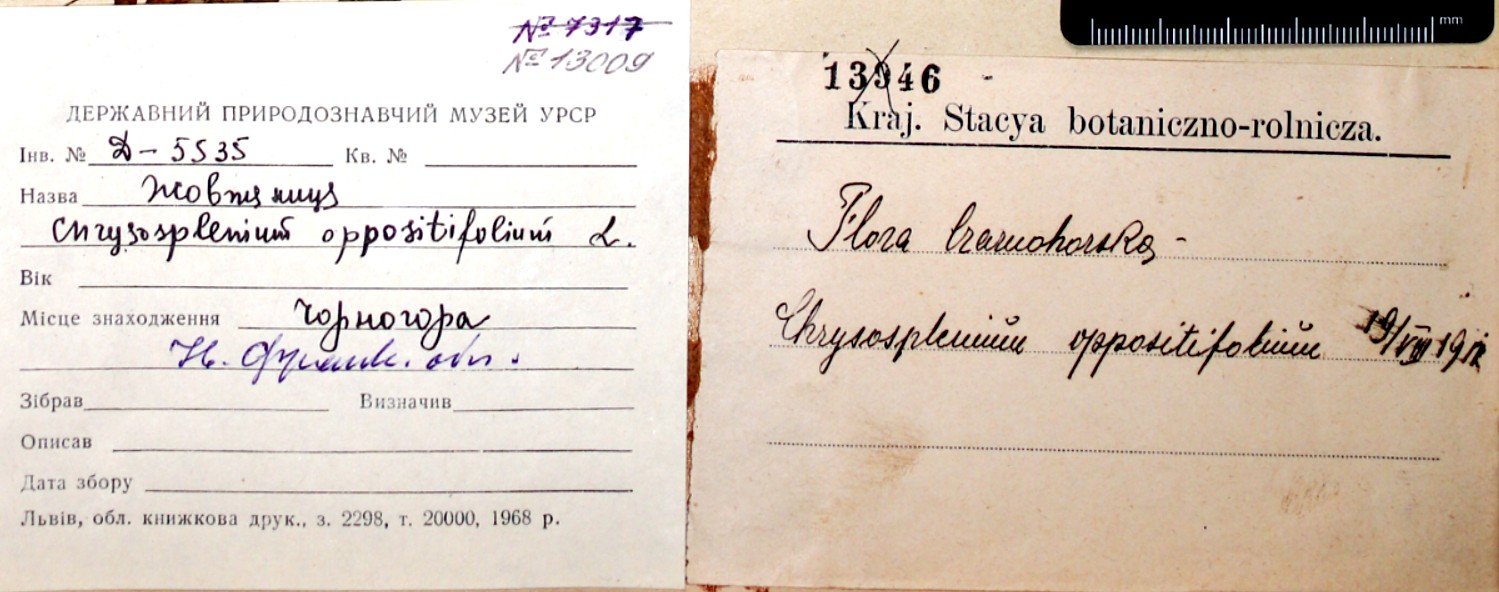 № 7317
№ 13009
ДЕРЖАВНИЙ ПРИРОДОЗНАВЧИЙ МУЗЕЙ УРСР
Інв. № Д-5535 Кв. №
Назва Жовтяниця
Chrysosplenium oppositifolium L.
Вік
Місце знаходження Чорногора
Ів. Франк. обл.
Зібрав Визначив
Описав
Дата збору
Львів, обл. книжкова друк., з. 2298, т. 20000, 1968 р.
mm
13946
Kraj. Stacya botaniczno-rolnicza.
Flora czarnohorska
Chrysosplenium oppositifolium 19/VIII